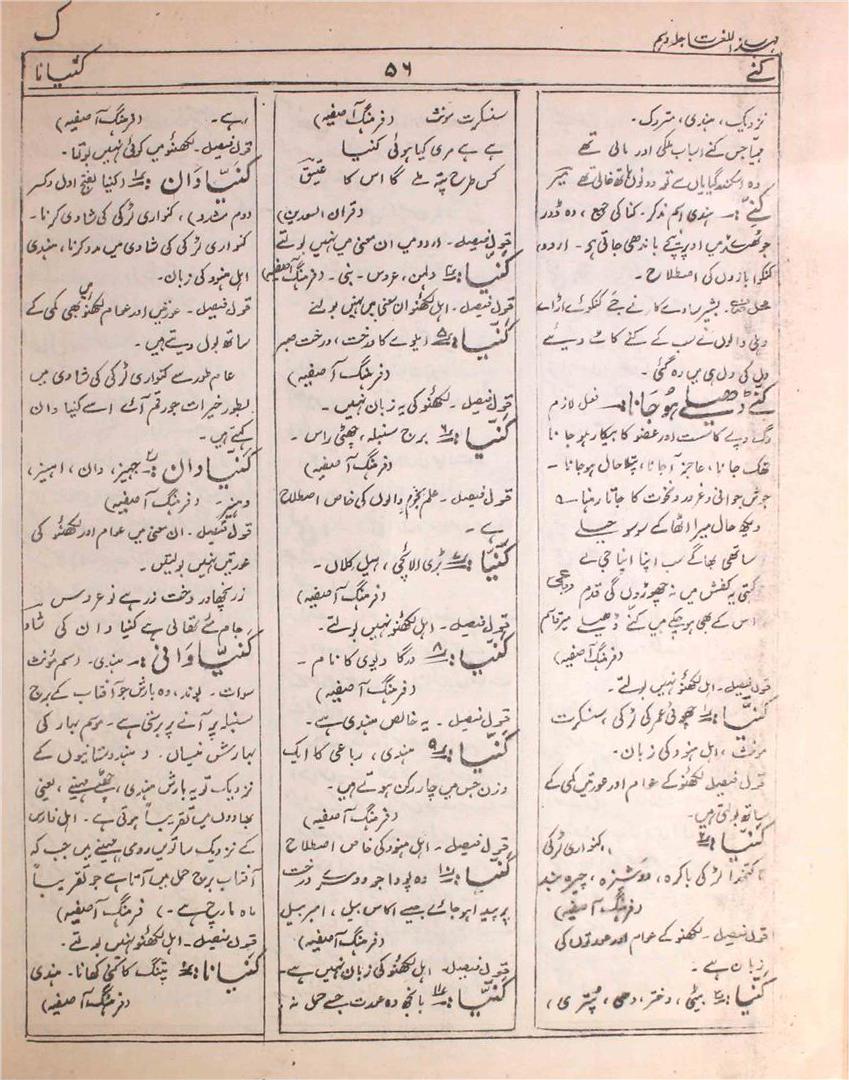 ک
مہذب اللغات جلد دہم
کنے
۵۶
کنیانا
نزدیک، ہندی، متروک۔
جیتا جس کنے اسباب ملکی اور مالی تھے
وہ اسکندر گیا یاں سے تو دونوں ہاتھ خالی تھے میر
کنّے :۔ ہندی اسم مذکر۔ کنا کی جمع، وہ ڈور
جو ٹھڈے میں اوپر نیچے باندھی جاتی ہے۔ اردو،
کنکوا بازوں کی اصطلاح۔
محل صرف۔ بشیر سادے کار نے جے کنکوئے اڑائے
دہلی والوں نے سب کے کنے کاٹ دیئے
دل کی دل ہی میں رہ گئی۔
کنّے ڈھیلے ہو جانا :۔ فعل لازم
رگ و پے کا سست اور عضو کا بیکار ہو جانا
تھک جانا، عاجز آ جانا، پتلا حال ہو جانا۔
جوش جوانی و غرور و نخوت کا جاتا رہنا۔
دیکھ حال میرا اٹھا کے سو سو حیلے
ساتھی بھاگے سب اپنا اپنا جی لے
کہتی یہ کفش میں نہ چھوڑوں گی قدم
اس کے بھی ہو چکے ہیں کنے ڈھیلے
(فرہنگ آصفیہ)
قول فیصل۔ اہل لکھنؤ نہیں بولتے۔
کنیّا :۱ چھوٹی عمر کی لڑکی، سنسکرت
مونث، اہل ہنود کی زبان۔
قول فیصل لکھنؤ کے عوام اور عورتیں کمی کے
ساتھ بولتی ہیں۔
کنیّا :۲ کنواری لڑکی
ناکتخدا لڑکی باکرہ، دوشیزہ، چیرہ بند
(فرہنگ آصفیہ)
قول فیصل۔ لکھنؤ کے عوام اور عورتوں کی
زبان ہے۔
کنیّا :۳ بیٹی، دختر، دھی، پُتری،
سنسکرت مونث (فرہنگ آصفیہ)
ہے ہے مری کیا ہوئی کنیا
کس طرح پتہ ملے گا اس کا
(قران السعدین)
قول فیصل۔ اردو میں ان معنی میں نہیں بولتے
کنیّا :۴ دلہن، عروس۔ بنی۔ (فرہنگ آصفیہ)
قول فیصل۔ اہل لکھنؤ ان معنی میں نہیں بولتے
کنیّا :۵ ایلوے کا درخت، درخت صبر
(فرہنگ آصفیہ)
قول فیصل۔ لکھنؤ کی یہ زبان نہیں۔
کنیّا :۶ برج سنبلہ، چھٹی راس۔
(فرہنگ آصفیہ)
قول فیصل۔ علم نجوم والوں کی خاص اصطلاح
ہے۔
کنیّا :۷ بڑی الائچی، ہیل کلاں۔
(فرہنگ آصفیہ)
قول فیصل۔ اہل لکھنؤ نہیں بولتے۔
کنیّا :۸ درگا دیوی کا نام۔
(فرہنگ آصفیہ)
قول فیصل۔ یہ خالص ہندی ہے۔
کنیّا :۹ ہندی، رباعی کا ایک
وزن جس میں چار رکن ہوتے ہیں۔
(فرہنگ آصفیہ)
قول فیصل۔ اہل ہنود کی خاص اصطلاح
کنیّا :۱۰ وہ پودا جو دوسرے درخت
پر پیدا ہو جائے جیسے اکاس بیل، امر بیل
(فرہنگ آصفیہ)
قول فیصل۔ اہل لکھنؤ کی زبان نہیں ہے۔
کنیّا :۱۱ بانجھ وہ عورت جسے حمل نہ
رہے۔ (فرہنگ آصفیہ)
قول فیصل۔ لکھنؤ میں کوئی نہیں بولتا۔
کنیّا دان :۱ (کنیا بفتح اول و کسر
دوم مشدد)، کنواری لڑکی کی شادی کرنا۔
کنواری لڑکی کی شادی میں مدد کرنا، ہندی
اہل ہنود کی زبان۔
قول فیصل۔ عورتیں اور عوام لکھنؤ میں بھی کمی کے
ساتھ بول دیتے ہیں۔
عام طور سے کنواری لڑکی کی شادی میں
بطور خیرات جو رقم آئے اسے کنیا دان
کہتے ہیں۔
کنیّا دان :۲ جہیز، دان،
دہیز۔ (فرہنگ آصفیہ)
قول فیصل۔ ان معنی میں عوام اور لکھنؤ کی
عورتیں نہیں بولتیں۔
زر نچھاور دخت زر ہے نو عروس
جام مے تھالی ہے کنیا دان کی شاد
کنیّا وانی :۔ ہندی۔ اسم مؤنث
سوات۔ بوند، وہ بارش جو آفتاب کے برج
سنبلہ پر آنے پر برستی ہے۔ موسم بہار کی
بارش نیساں۔ ہندوستانیوں کے
نزدیک تو یہ بارش ہندی، چھٹے مہینے، یعنی
بھادوں میں تقریباً ہوتی ہے۔ اہل فارس
کے نزدیک ساتویں رومی مہینے میں جب کہ
آفتاب برج حمل میں آتا ہے جو تقریباً
ماہ مارچ ہے۔) فرہنگ آصفیہ)
قول فیصل۔ اہل لکھنؤ نہیں بولتے۔
کنیانا :۔ پتنگ کا کنی کھانا۔ ہندی
(فرہنگ آصفیہ)